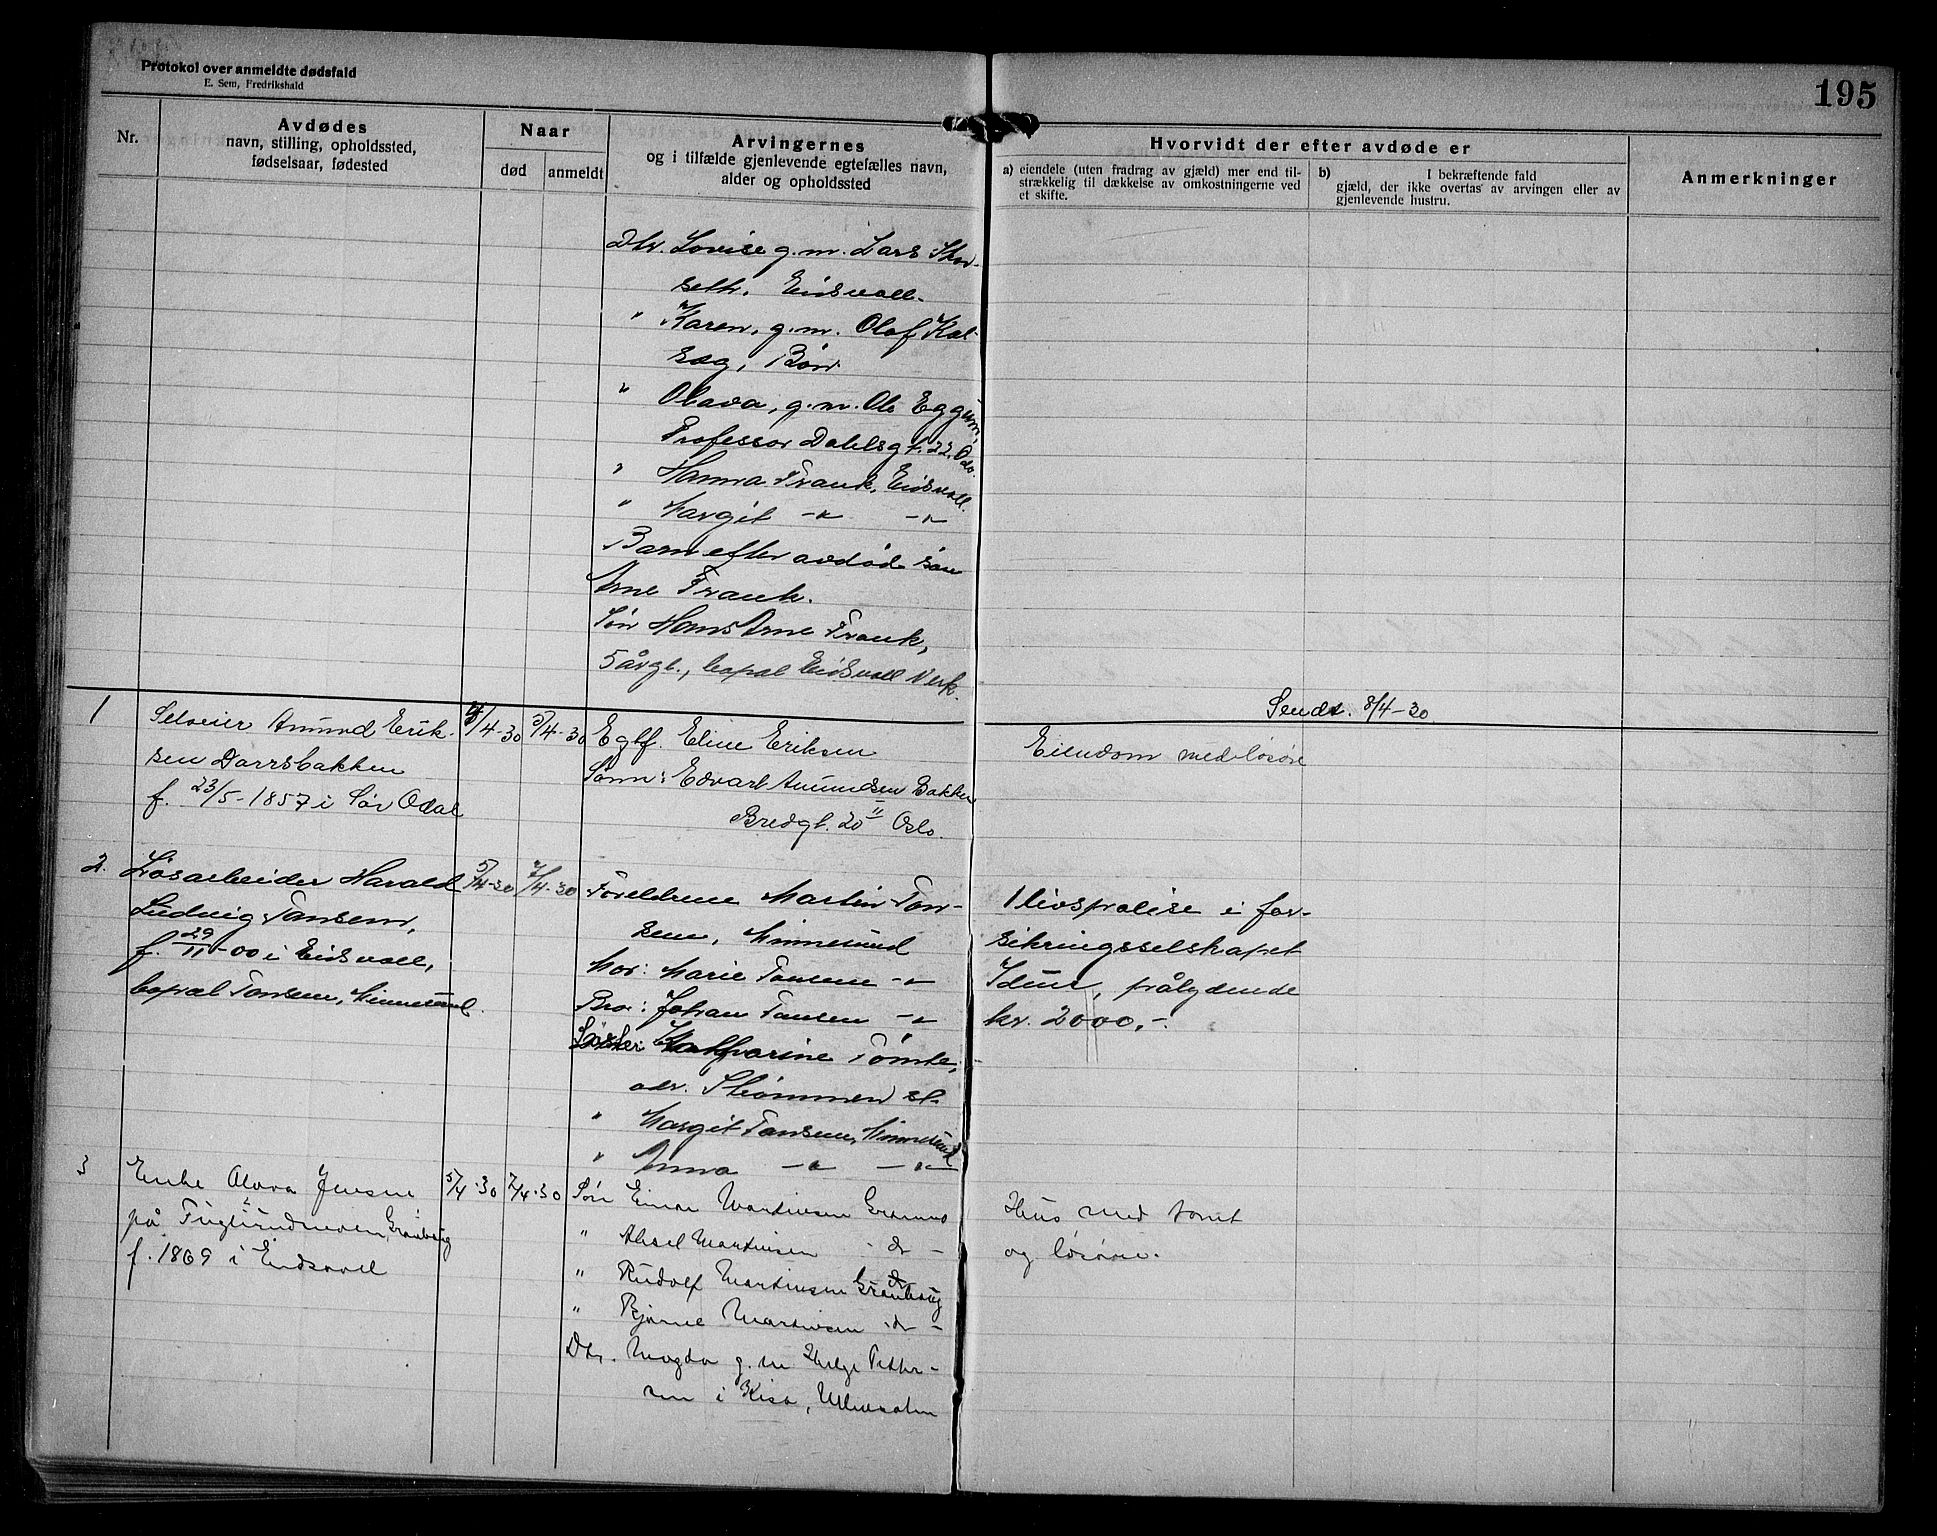 Protokol over anmeldte dødsfald
E. Sem, Fredrikshald
195
Nr.
Avdødes
navn, stilling, opholdssted,
fødselsaar, fødested
Naar
død
anmeldt
Arvingernes
og i tilfælde gjenlevende egtefælles navn,
alder og opholdssted
Hvorvidt der efter avdøde er
a) eiendele (uten fradrag av gjæld) mer end til-
strækkelig til dækkelse av omkostningerne ved
et skifte.
b) I bekræftende fald
gjæld, der ikke overtas av arvingen eller av
gjenlevende hustru.
Anmerkninger
Dtr. Lovise g.m. Lars Skor-
seth, Eidsvoll.
" Karen, g.m. Olaf Kol-
sæg, Bøn
" Olava, g.m. Ole Eggum,
Professor Dahlsgt. 22, Oslo.
" Hanna Frank, Eidsvoll.
" Margit -"- -"-
Barn efter avdød søn
Arne Frank.
Søn Hans Arne Frank,
5 årgl., bopæl Eidsvoll Verk.
Sendt. 8/4-30
1
Selveier Amund Erik-
sen Dorrsbakken
f. 23/5-1857 i Sør Odal
4/4-30
5/4-30
Egtf. Eline Eriksen
Sønn: Edvart Amundsen Bakken
Bredgt. 20 II Oslo.
Eiendom med løsøre
2.
Løsarbeider Harald
Ludvig Tansem,
f. 29/11-00 i Eidsvoll,
bopæl Tansem, Minnesund.
5/4-30
7/4-30
Foreldrene Martin Tan-
sem, Minnesund
Mor: Marie Tansem -"-
Bror: Johan Tansen -"-
Søster: Katharine Tømte,
adr. Strømmen st.
" Margit Tansem, Minnesund
" Anna -"- -"-
1 livspolise i for-
sikringsselskapet
Idun, pålydende
kr. 2000,-.
3
Enke Olava Jensen
på Fuglsundmoen, Granberg
f. 1869 i Eidsvoll
5/4-30
7/4-30
Søn Einar Martinsen
" Aksel Martinsen - dr -
" Rudolf Martinsen Granberg
" Bjarne Martinsen - dr -
Dtr. Magda g.m Helge Petter-
sen i Kisa, Ullensaker
Hus med tomt
og løsøre.